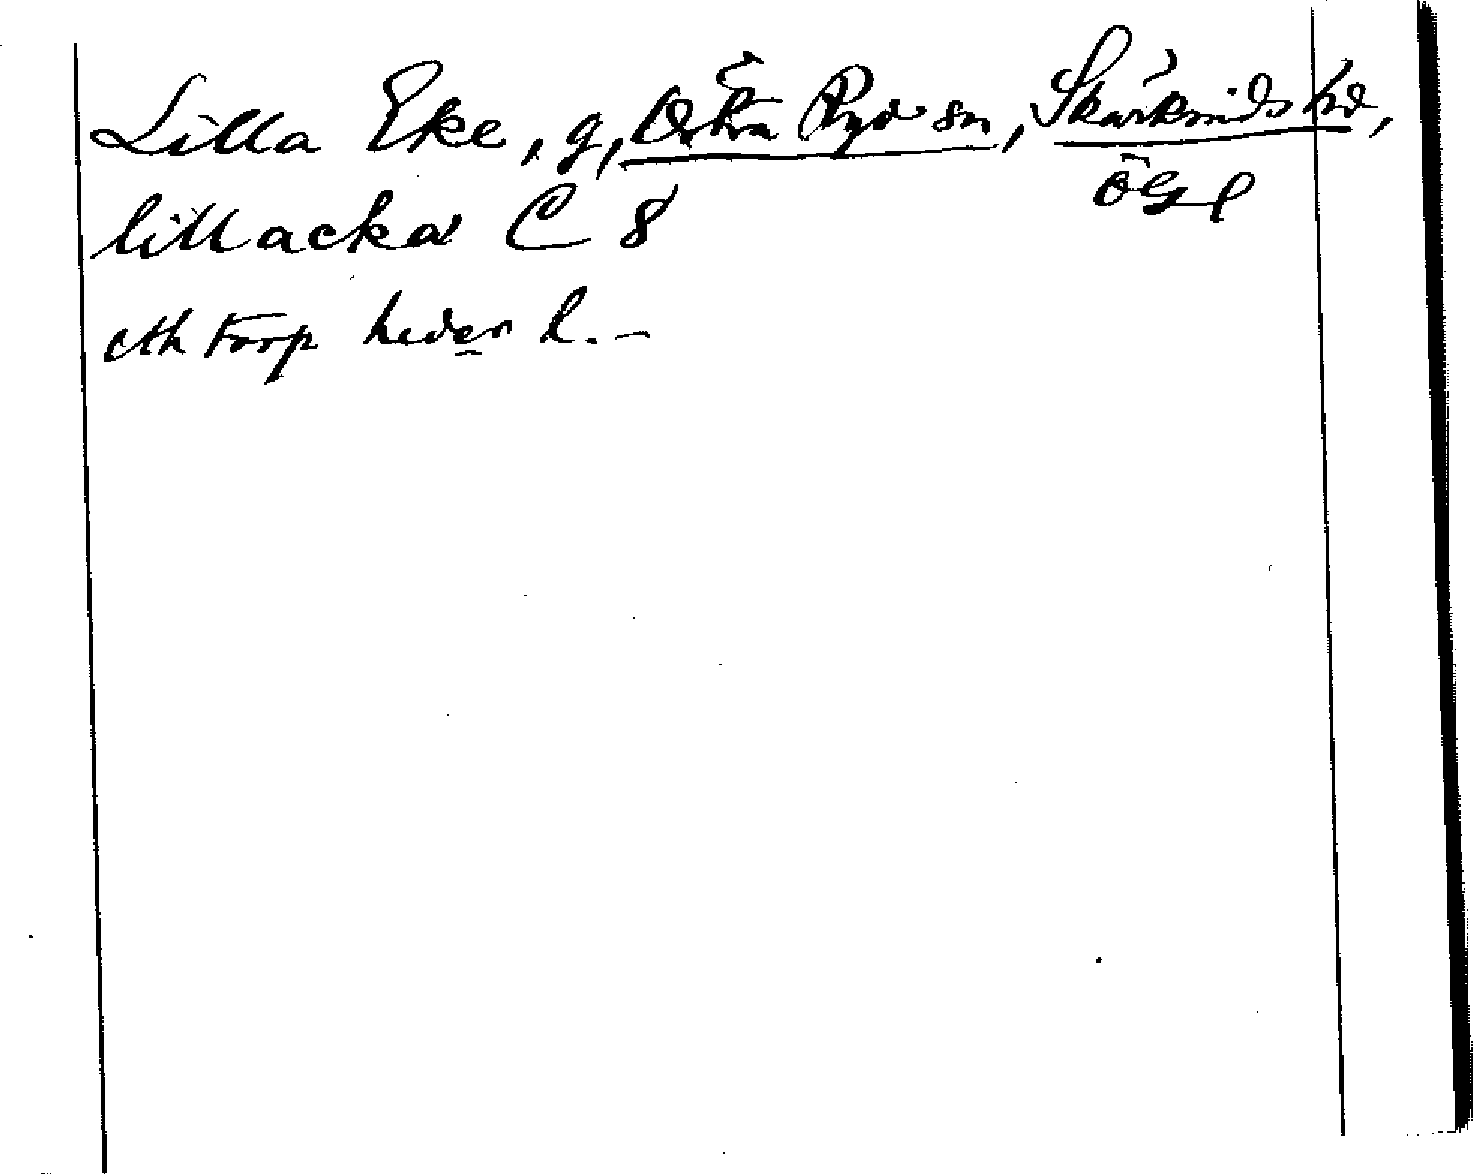 Lilla Eke, g, Östra Ryd sn, Skärkinds hd,
ÖGl
lillacka C 8
eth torp heder l. –